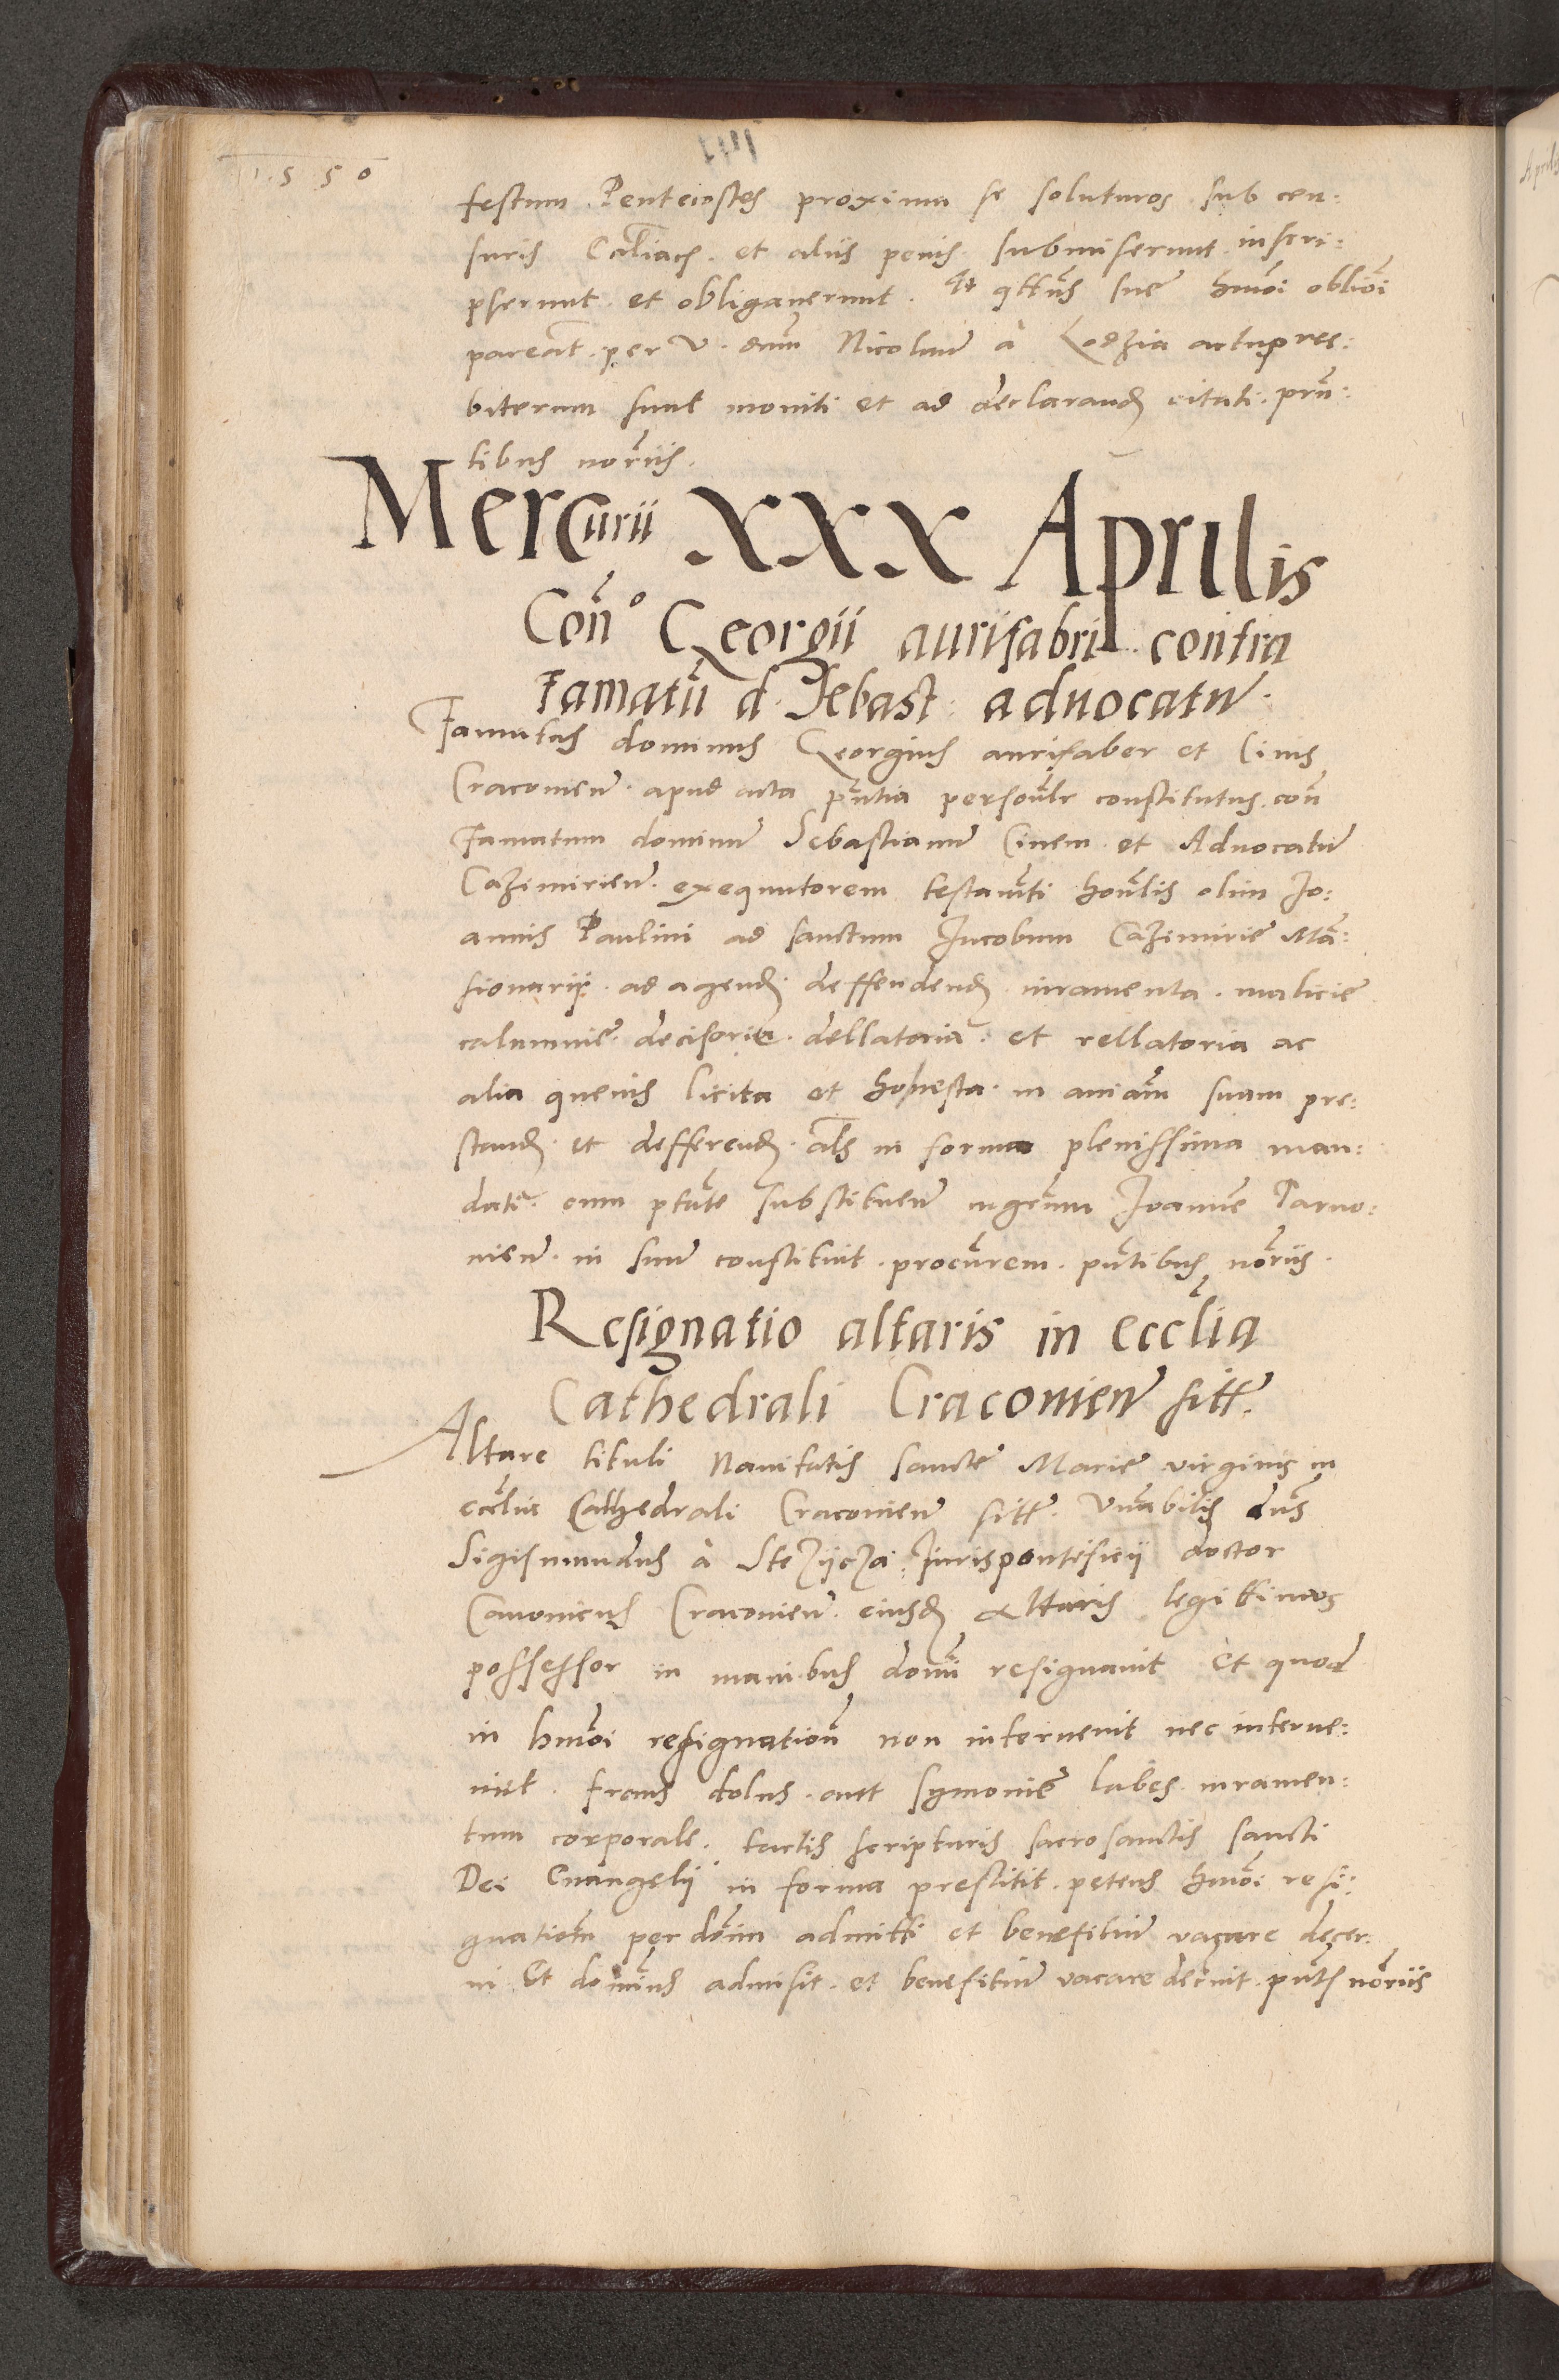 1550
festum Pentecostes proximum se soluturos sub cen:
suris Ecclīacis et aliis penis submiserunt inscri:
pserunt et obligaverunt. Et qtēns sue hmōi oblīoni
pareāt per V. dnm Nicolaum à Lodzia actu pres:
biterum sunt moniti et ad declarand citati. prn:
tibus noriis.
Mercurii XXX Aprilis
Con° Georgii aurifabri contra
Famatū d. Sebast. advocatū.
Famatus dominus Georgius aurifaber et Civis
Cracovien̄. apud acta pn̄tia personlr constitutus. con
Famatum dominū Sebastianū Civem et Advocatū
Cazimirien̄. exequutorem testamti honlis olim Jo:
annis Paulini ad sanctum Jacobum Cazimirie Mā:
sionarii. ad agend. deffendend iuramenta. malicie
calumnie. decisoria. dellatoria. et rellatoria ac
alia quevis licita et honesta in aniam suam pre:
stand. et defferend. als in forma plenissima man:
dati. cum ptāte substituen̄ ingenuū Joannē Tarno:
vien̄. in suū constituit. procurem. pntibus noriis.
Resignatio altaris in ecclīa
Cathedrali Cracovien̄ sitt.
Altare tituli Navitatis sancte Marie virginis in
ecclīa Cathedrali Cracovien̄ sitt. Vnabilis dns
Sigismundus à Stezijcza Jurispontificii doctor
Canonicus Cracovien̄. eiusd altaris legittimus
possessor in manibus domī resignavit et quod
in hmōi resignationē non intervenit nec interve:
niet. fraus dolus. aut symonie labes iuramen:
tum corporale. tactis scripturis sacrosanctis sancti
Dei Evangelii in forma prestitit. petens hmōi resi:
gnationē per domī admitti et benefitiū vacare decer:
ni Et dominus admisit. et benefitiū vacare decrevit. pntbs noriis